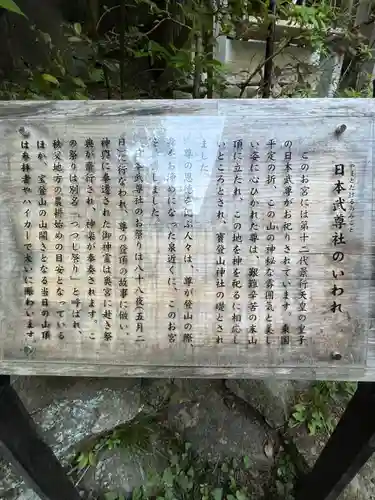 日本武尊社のいわれ
やまとたけるのみこと
このお宮には第十二代景行天皇の皇子
の日本武尊がお祀りされています。東国
平定の折、この山の神秘な雰囲気と美し
い姿に心ひかれた尊は、艱難辛苦の末山
頂に立たれ、この地を神を祀るに相応し
いところとされ、寶登山神社の礎とされ
ました。
尊の恩徳を偲ぶ人々は、尊が登山の際、
身をお浄めになった泉近くに、このお宮
を
しました。
日本武尊社のお祭りは八十八夜五月二
日に行なわれ、尊の登頂の故事に倣い、
神輿に奉遷された御神霊は奥宮に赴き祭
典が斎行され、神楽が奉奏されます。こ
の祭りは別名「つつじ祭り」と呼ばれ、
秩父地方の農耕始めの目安となっている
ほか、宝登山の山開きともなる当日の山頂
は参拝者やハイカーで大いに賑わいます。